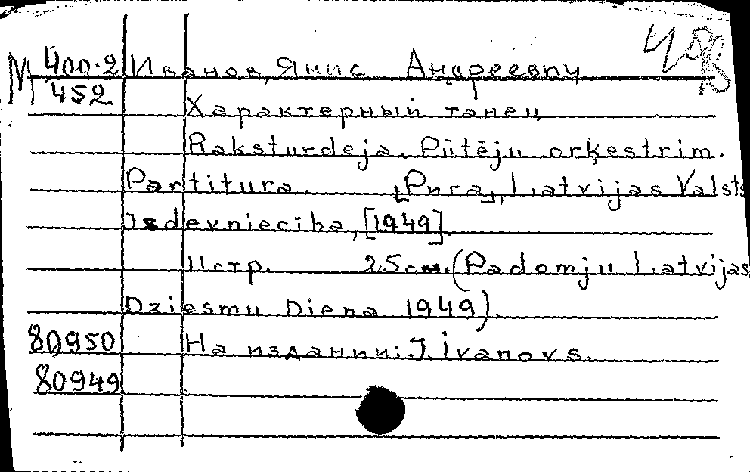 М 400-2 Иванов, Янис Андреевич
452
Характерный танец
Raksturdeja. Pūtēju orķestrim.
Partitura. [Рига], Latvijas Valsts
Isdevnieciba, [1949]
11 стр. 25 см. (Padomju Latvijas
Dziesmu Diena 1949)
80950 На издании: J. Ivanovs.
80949